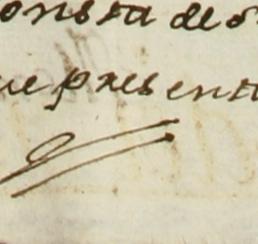 onsta de
ue presenta